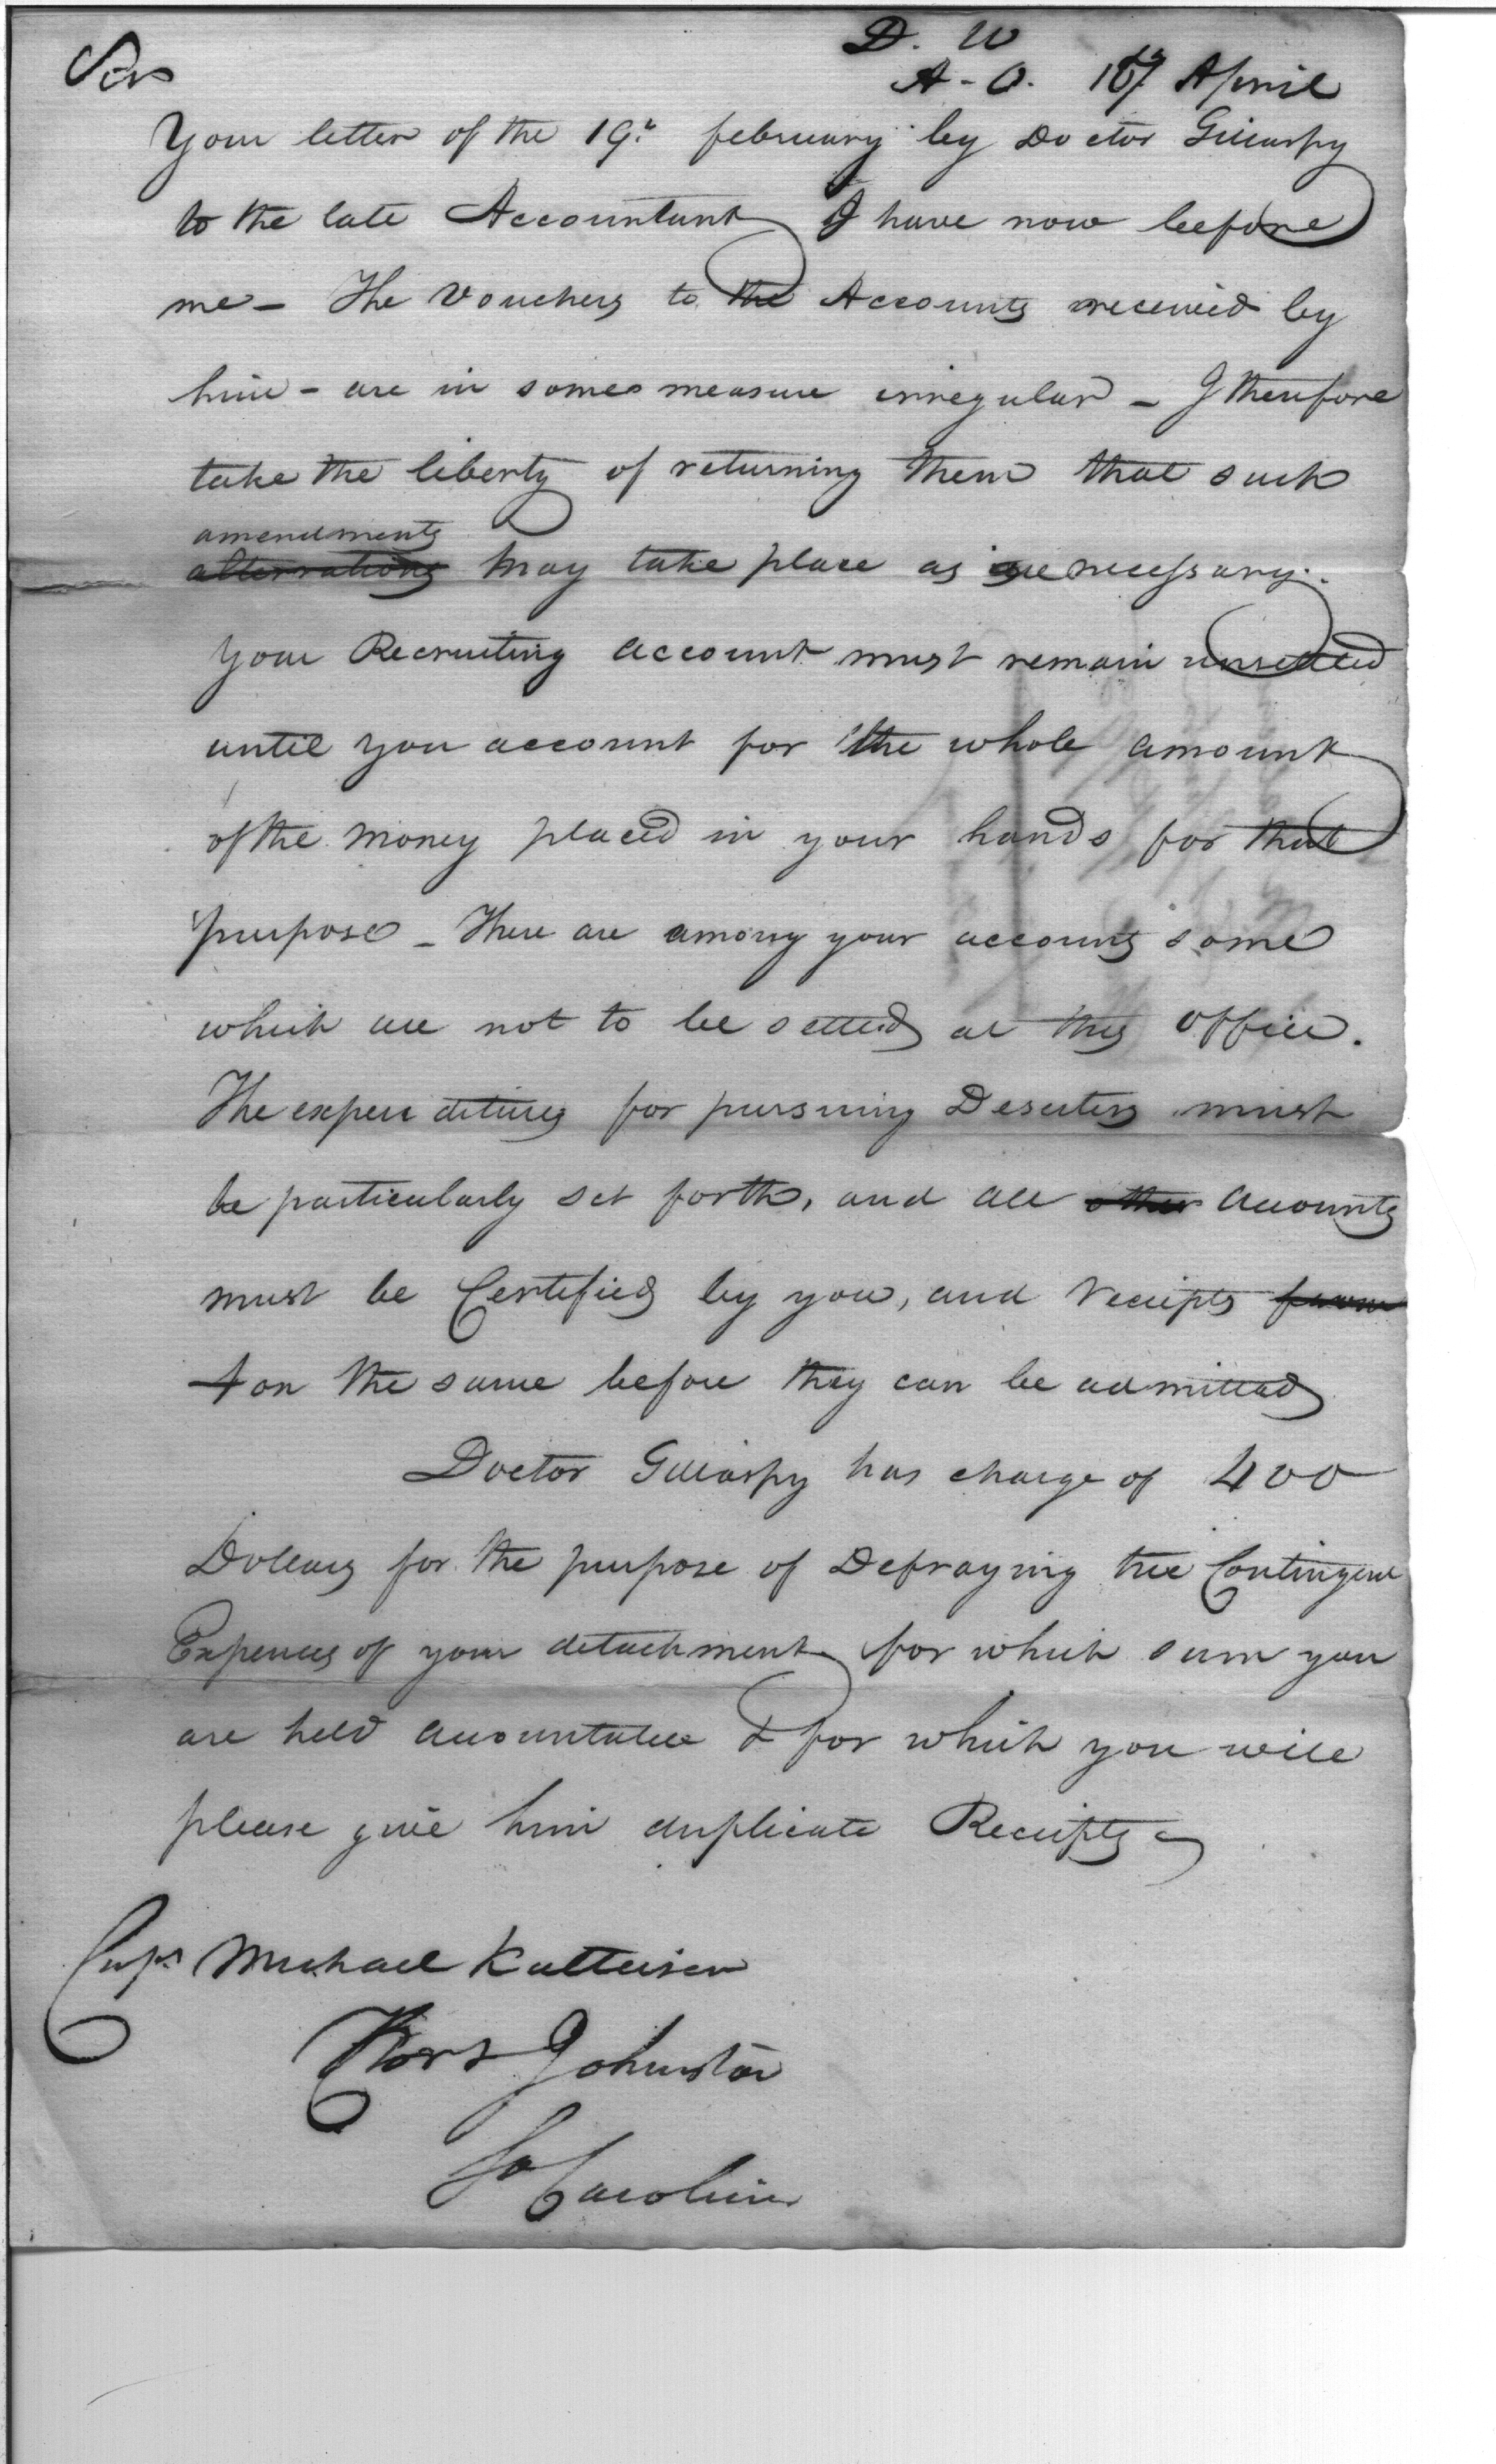 D. W
Sir
A-O. April
Your letter of the 19th february by Doctor Gillaspy
to the late Accountant I have now before
me - The Vouchers to the Accounts received by
him - are in some measure irregular - I therefore
take the liberty of returning them that such
amendments
alterrations may take place as are necessary.
Your Recruiting account must remain unsettled
until you account for the whole amount
of the money placed in your hands for that
purpose - There are among your accounts some
which are not to be settled at this office.
The expenditures for pursuing Deserters must
be particularly set forth, and all other Accounts
must be Certified by you, and receipts from
on the same before they can be admitted
Doctor Gillaspy has charge of 400
Dollars for the purpose of Defraying the Contingent
Expences of your detachment for which sum you
are held accountable & for which you will
please give him duplicate Receipts
Capt Michael Kalteisen
Fort Johnston
So Carolina